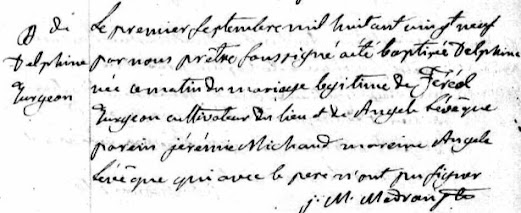 B de
Delphine
Turgeon
Le premier Septembre mil huitant vingt neuf
par nous prêtre soussigné a été baptisée Delphine
née ce matin du mariage legitime de Féréol
Turgeon cultivateur du lieu et de Angele Lévêque
parein jérémie Michaud mareine Angele
Lévêque qui avec le pere n'ont pu signer
j. M. Madran ptre